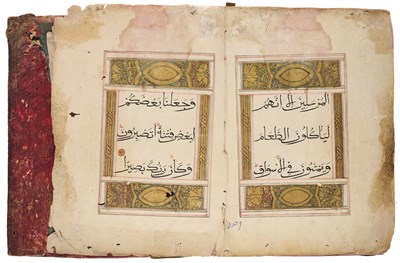 المرسلين إلا إنهم
ليأكلون الطعام
ويمشون في الأسواق
وجعلنا بعضكم
لبعض فتنة أتصبرون
وكان ربك بصيرا